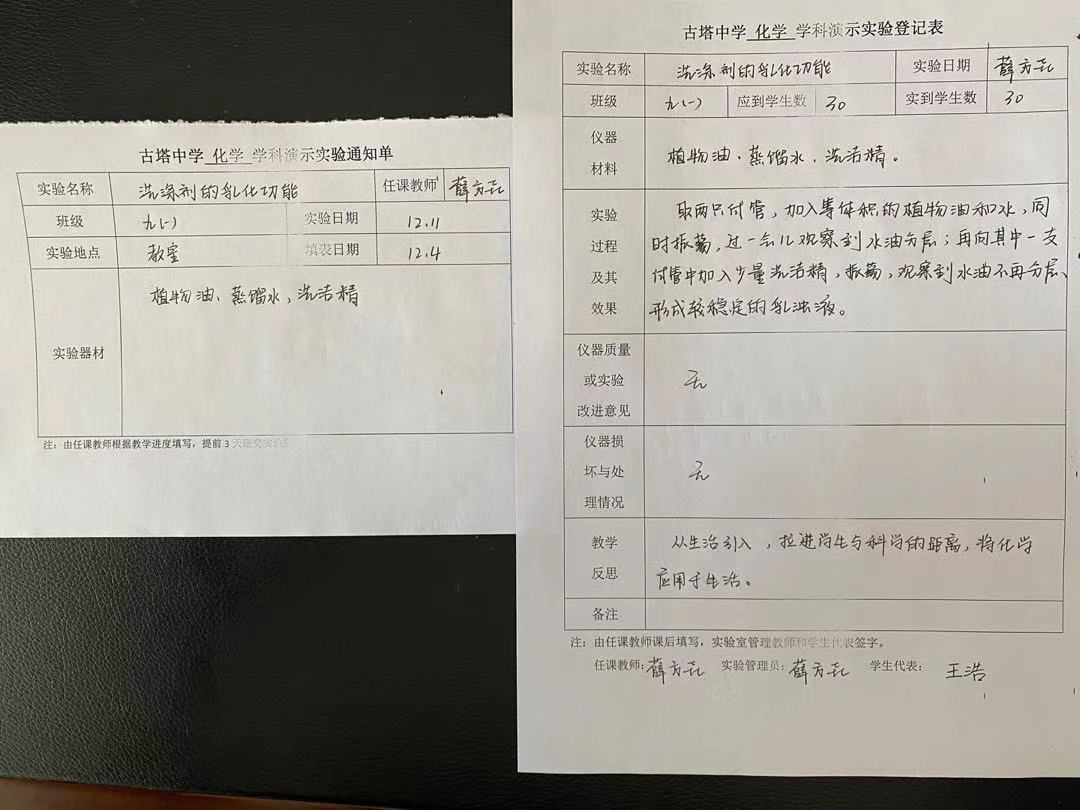 古塔中学 化学 学科演示实验通知单
实验名称 洗涤剂的乳化功能 任课教师 薛方云
班级 九(一) 实验日期 12.11
实验地点 教室 填表日期 12.4
实验器材 植物油、蒸馏水、洗洁精
注：由任课教师根据教学进度填写，提前 3 天送交实验
古塔中学 化学 学科演示实验登记表
实验名称 洗涤剂的乳化功能 实验日期 薛方云
班级 九(一) 应到学生数 30 实到学生数 30
仪器
材料
植物油、蒸馏水、洗洁精。
实验
过程
及其
效果
取两只付管，加入等体积的植物油和水，同
时振荡，过一会儿观察到水油分层；再向其中一支
付管中加入少量洗洁精，振荡，观察到水油不再分层、
形成较稳定的乳浊液。
仪器质量
或实验
改进意见
无
仪器损
坏与处
理情况
无
教学
反思
从生活引入，拉进学生与科学的距离，将化学
应用于生活。
备注
注：由任课教师课后填写，实验室管理教师和学生代表签字。
任课教师: 薛方云 实验管理员: 薛方云 学生代表： 王浩